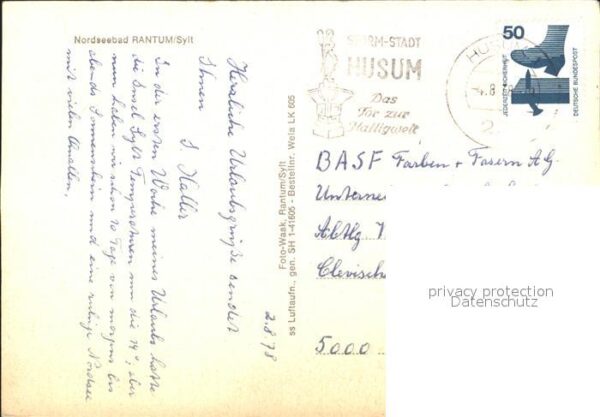 Nordseebad RANTUM/Sylt
In der ersten Woche meines Urlaubs hatte
die Insel Sylt Temperaturen um die 14°, aber
nun haben wir schon 10 Tage von morgens bis
abends Sonnenschein und eine ruhige Nordsee
mit vielen Quallen.
Herzliche Urlaubsgrüße sendet
Ihnen
S. Haller
2.8.78
Foto-Waak, Rantum/Sylt
ss Luftaufn., gen. SH 1-41605 - Bestellnr. Wela LK 605
STORM-STADT
HUSUM
Das
Tor zur
Halligwelt
HUSUM
4.8.78
2
50
JEDERZEIT SICHERHEIT
DEUTSCHE BUNDESPOST
BASF Farben + Fasern AG.
Unterne
Abtlg
Clevische
5000
privacy protection
Datenschutz